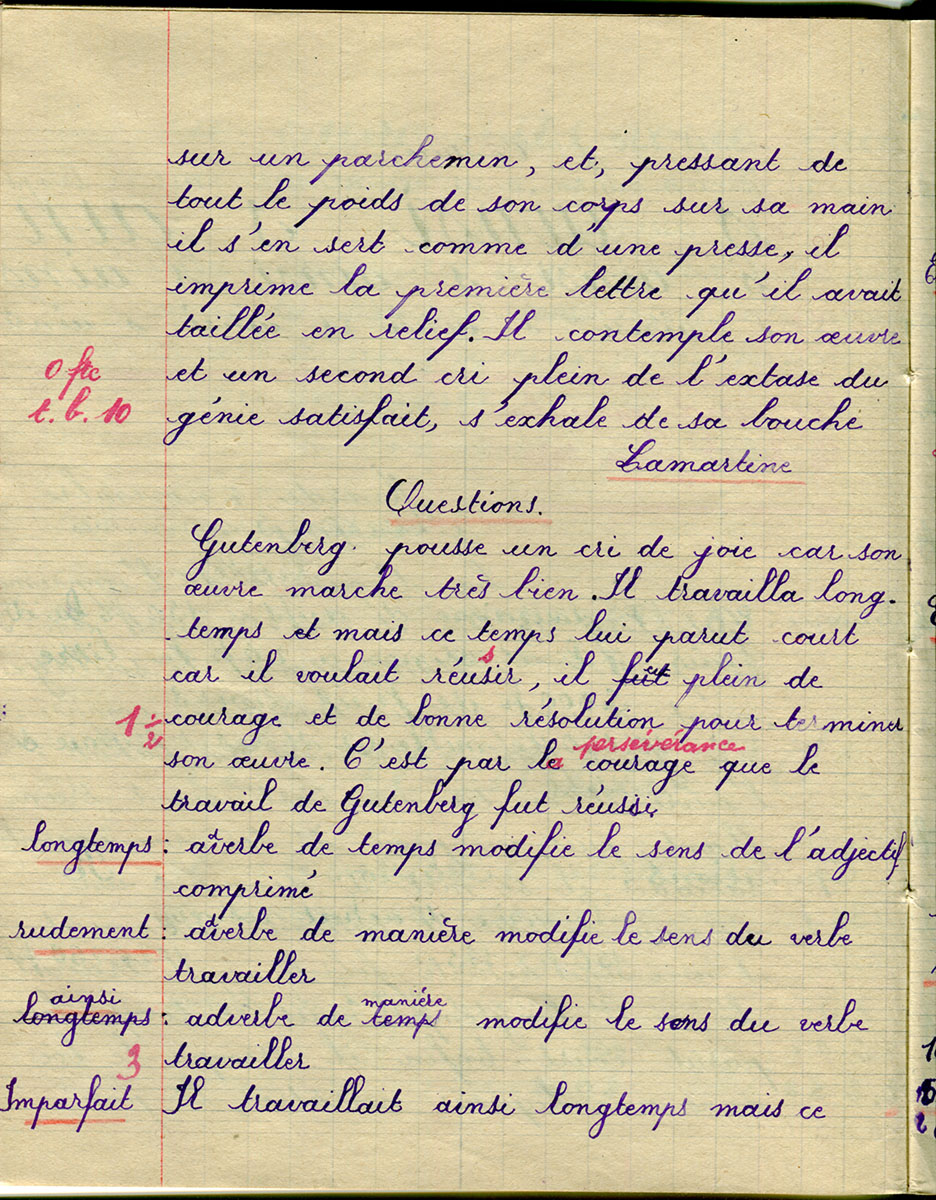 sur un parchemin, et, pressant de
tout le poids de son corps sur sa main
il s'en sert comme d'une presse, il
imprime la première lettre qu'il avait
taillée en relief. Il contemple son œuvre
0 fte
et un second cri plein de l'extase du
t. b. 10
génie satisfait, s'exhale de sa bouche
Lamartine
Questions.
Gutenberg pousse un cri de joie car son
œuvre marche très bien. Il travailla long-
temps et mais ce temps lui parut court
s
car il voulait réusir, il fût plein de
1 1/2
courage et de bonne résolution pour terminer
persévérance
son œuvre. C'est par la courage que le
travail de Gutenberg fut réussi.
longtemps : adverbe de temps modifie le sens de l'adjectif
comprimé
rudement : adverbe de manière modifie le sens du verbe
travailler
ainsi manière
longtemps : adverbe de temps modifie le sens du verbe
3
travailler
Imparfait Il travaillait ainsi longtemps mais ce